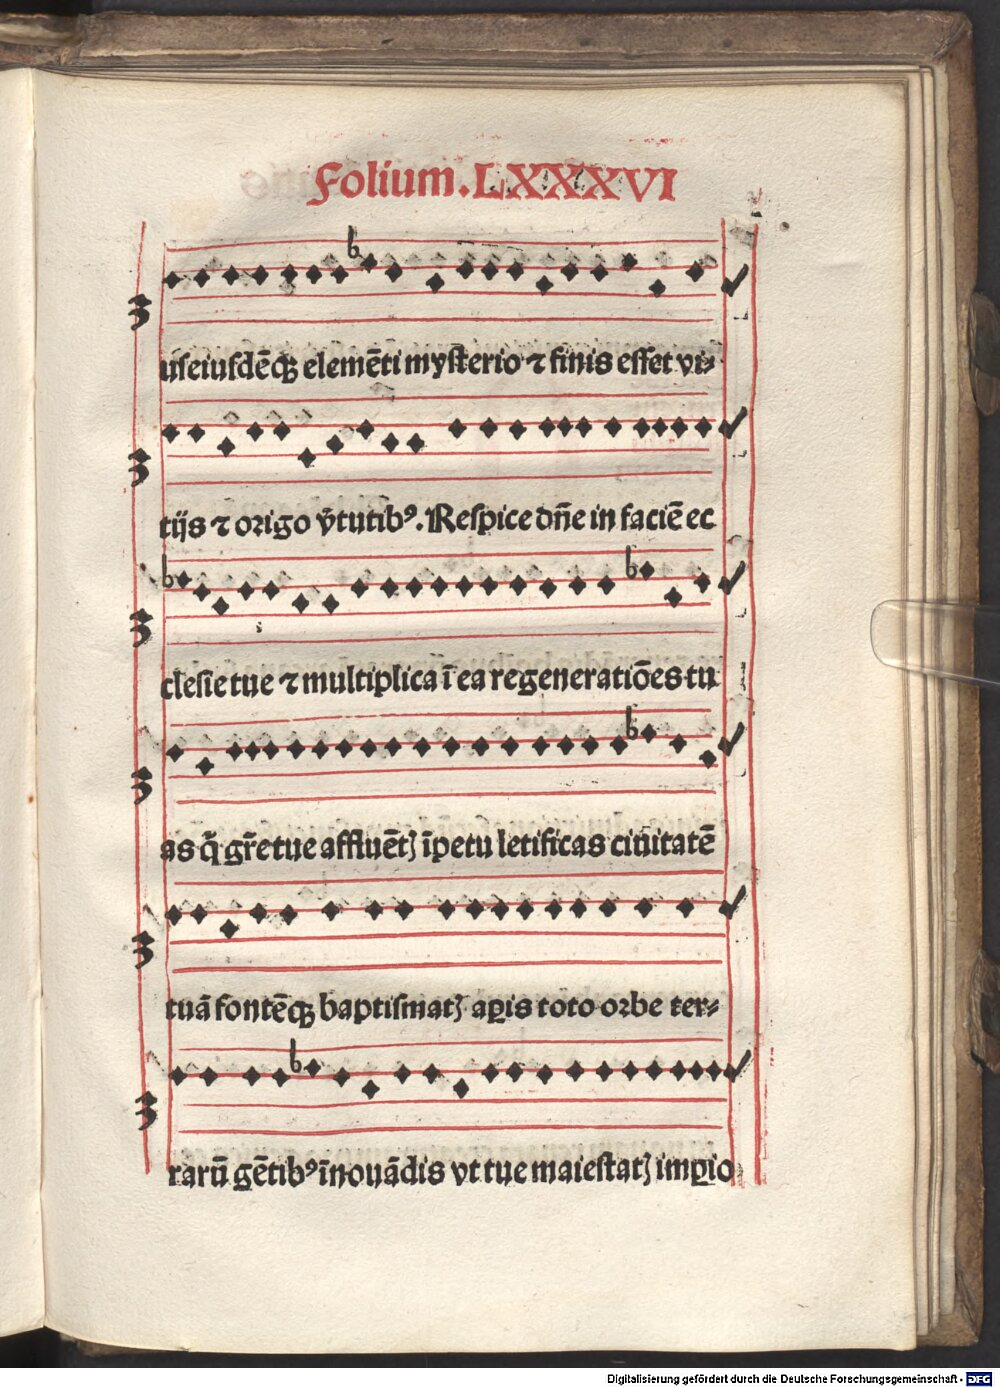 Folium.LXXXVI
us eiusdēqꝫ elemēti mysterio ⁊ finis esset vi⸗
tijs ⁊ origo v̄tutibꝰ. Respice dn̄e in faciē ec
clesie tue ⁊ multiplica ī ea regeneratiōes tu
as q̄ gr̄e tue affluētꝭ īpetu letificas ciuitatē
tuā fontēqꝫ baptismatꝭ aꝑis toto orbe ter⸗
rarū gētibꝰ īnouādis vt tue maiestatꝭ imꝑio
Digitalisierung gefördert durch die Deutsche Forschungsgemeinschaft - DFG